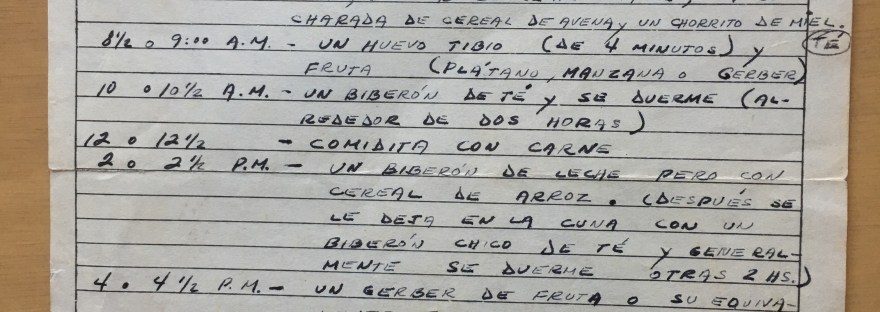 CHARADA DE CEREAL DE AVENA y UN CHORRITO DE MIEL.
8½ o 9:00 A.M. - UN HUEVO TIBIO (DE 4 MINUTOS) y TÉ
FRUTA (PLÁTANO, MANZANA o GERBER)
10 o 10½ A.M. - UN BIBERÓN DE TÉ y SE DUERME (AL-
REDEDOR DE DOS HORAS)
12 o 12½ - COMIDITA CON CARNE
2 o 2½ P.M. - UN BIBERÓN DE LECHE PERO CON
CEREAL DE ARROZ. (DESPUÉS SE
LE DEJA EN LA CUNA CON UN
BIBERÓN CHICO DE TÉ Y GENERAL-
MENTE SE DUERME OTRAS 2 HS.)
4 o 4½ P.M. - UN GERBER DE FRUTA O SU EQUIVA-